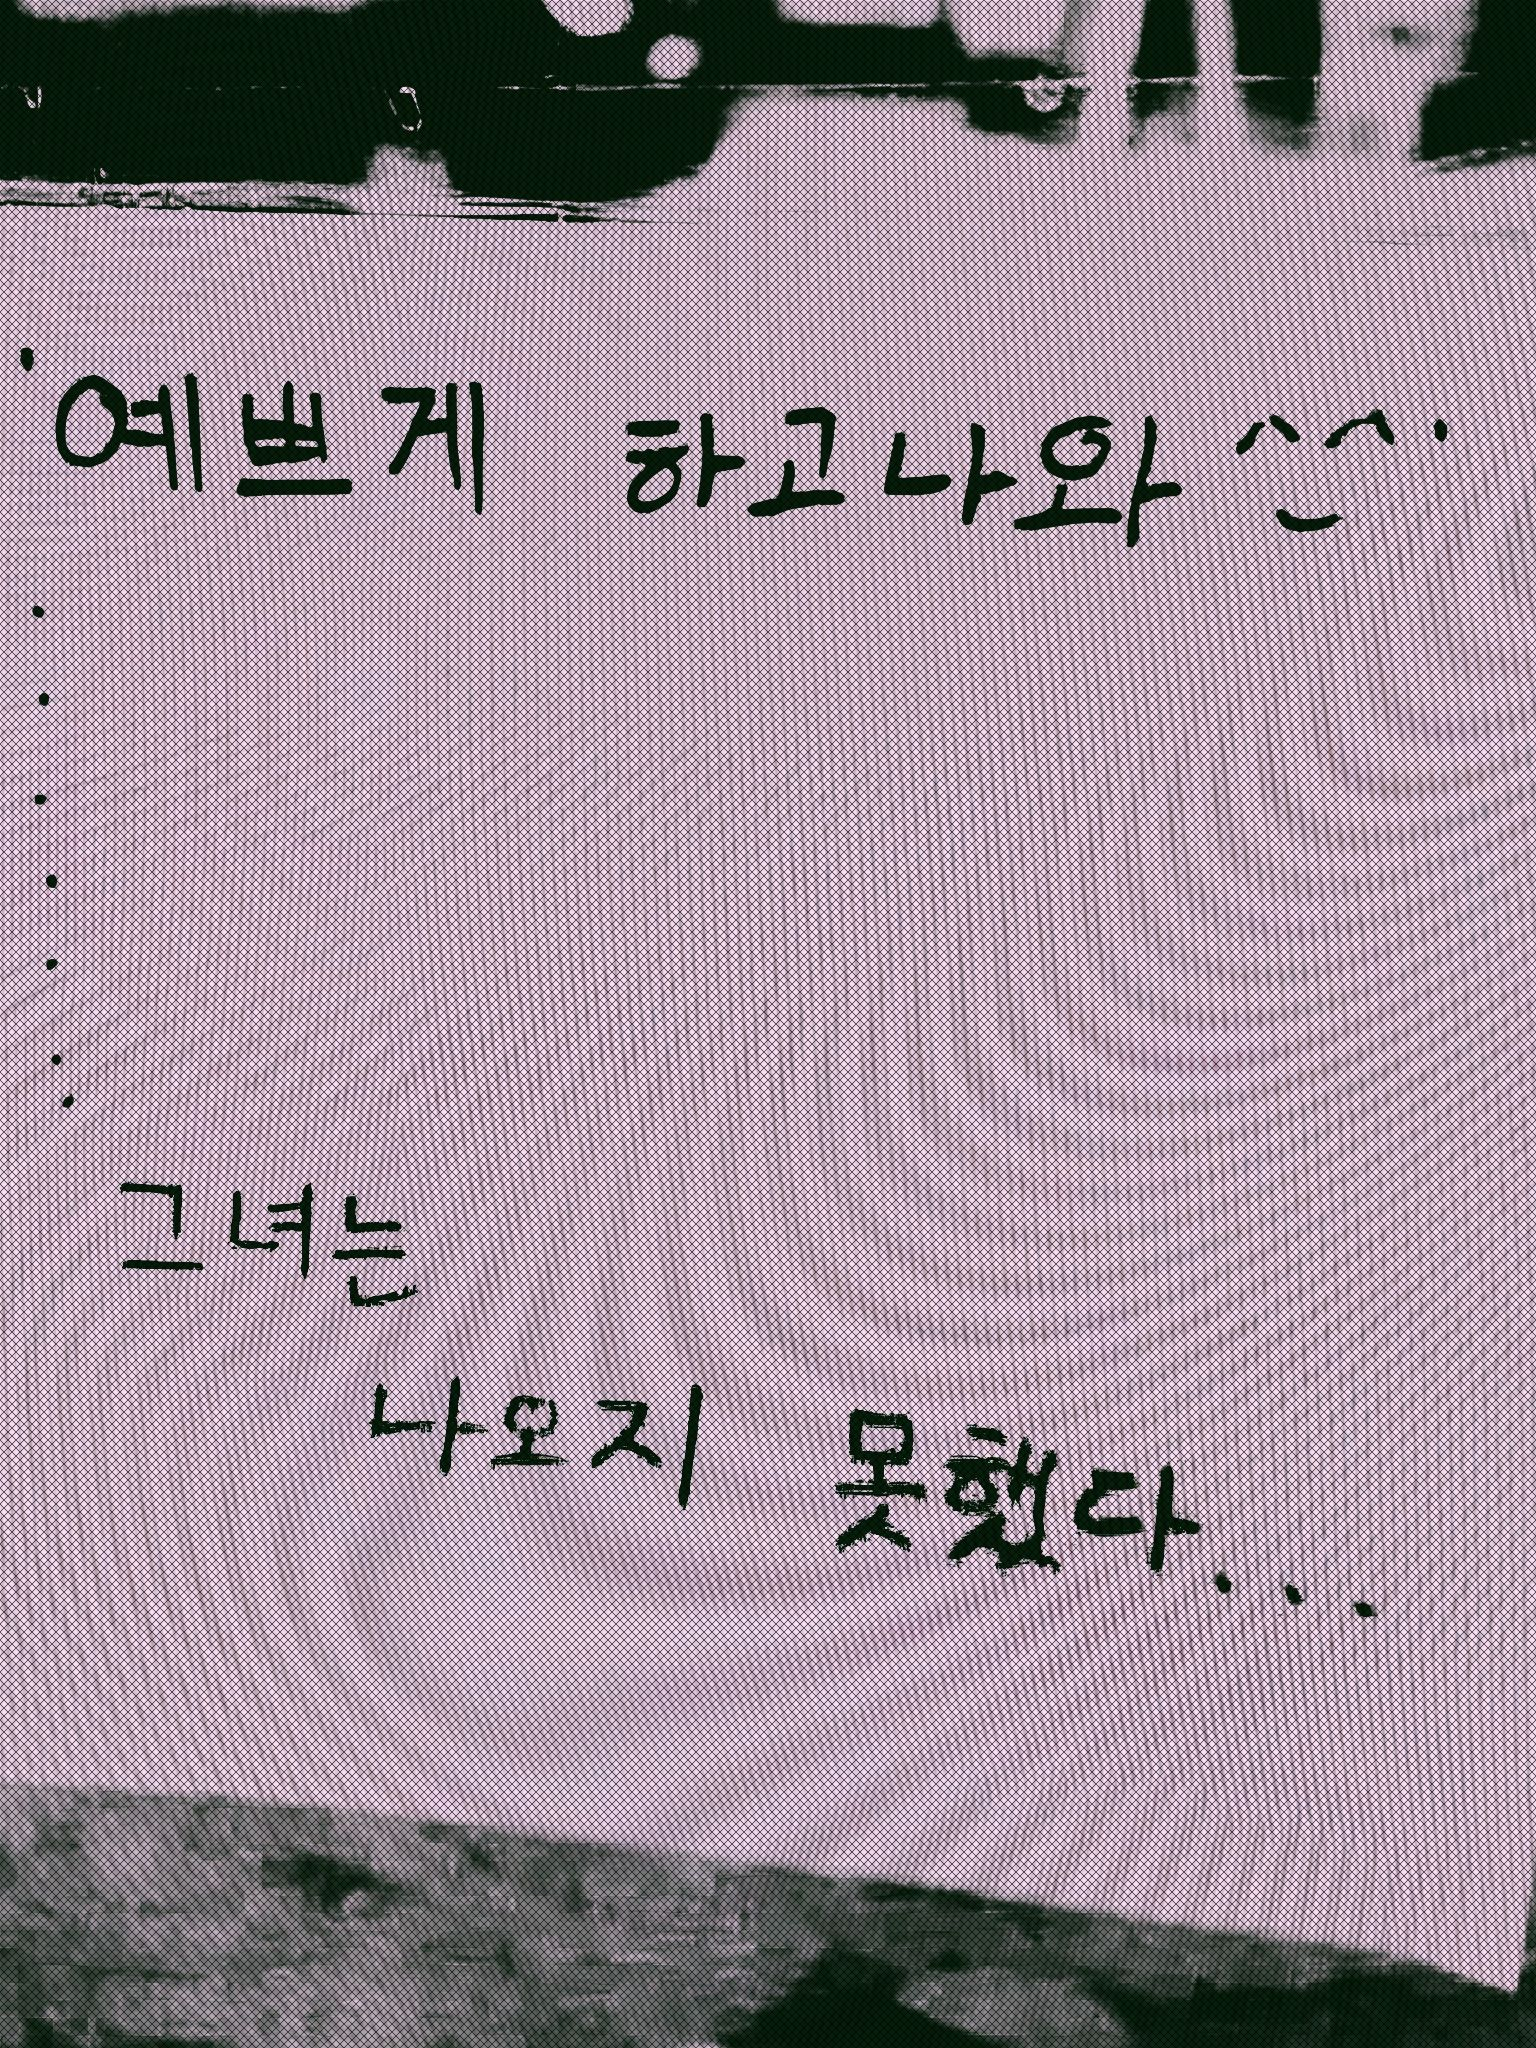 예쁘게 하고나와 ^^
그녀는
나오지 못했다...